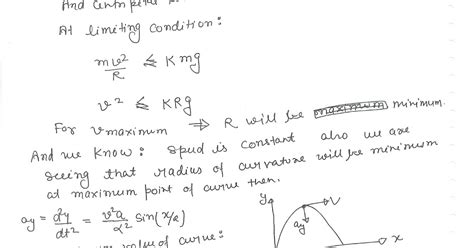 And Centripetal
At limiting condition:
mv²/R ≤ Kmg
v² ≤ KRg
For vmaximum ⇒ R will be minimum.
And we know: speed is constant also we are
seeing that radius of curvature will be minimum
at maximum point of curve then.
ay = d²y/dt² = v²a/α² sin(x/α)
y
v
ay
x
value of curve: